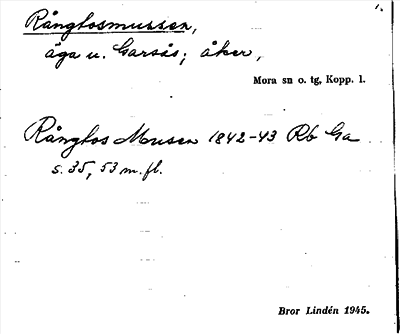 1.
Rånglosmussen,
äga u. Garsås; åker,
Mora sn o. tg, Kopp. l.
Rånglos Mussen 1842-43 Rb Ga
s. 35, 53 m. fl.
Bror Lindén 1945.